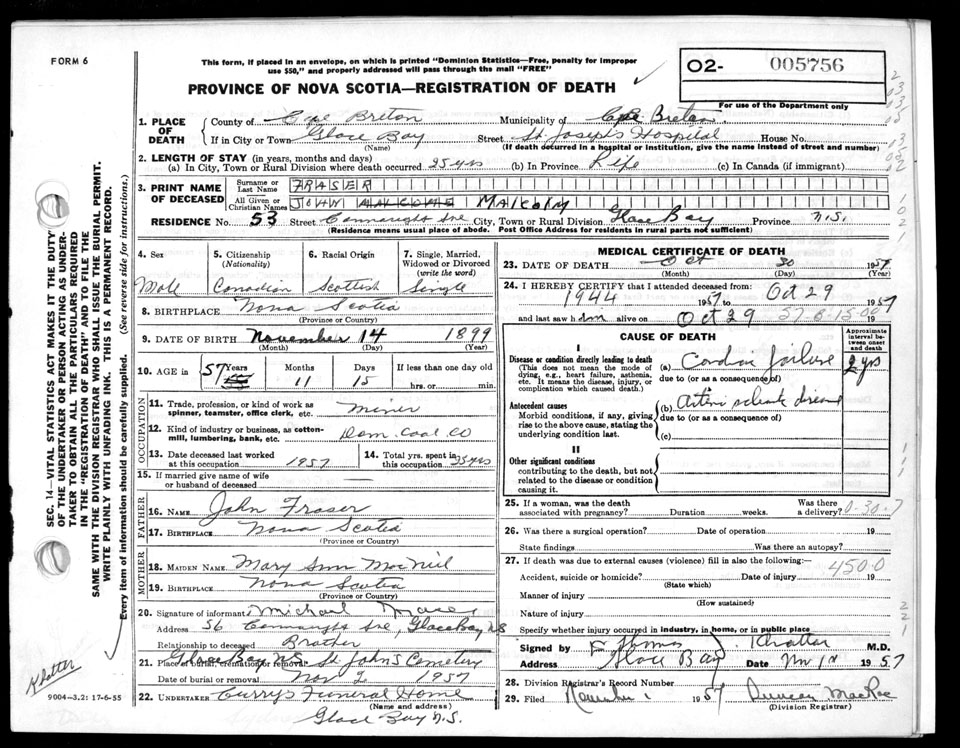 FORM 6
This form, if placed in an envelope, on which is printed "Dominion Statistics—Free, penalty for improper
use $50," and properly addressed will pass through the mail "FREE"
PROVINCE OF NOVA SCOTIA—REGISTRATION OF DEATH
O2- 005756
For use of the Department only
1. PLACE OF DEATH
County of Cape Breton Municipality of Cape Breton
If in City or Town Glace Bay Street St Joseph's Hospital House No.
(Name) (If death occurred in a hospital or institution, give the name instead of street and number)
2. LENGTH OF STAY (in years, months and days)
(a) In City, Town or Rural Division where death occurred 25 yrs (b) In Province Life (c) In Canada (if immigrant)
3. PRINT NAME OF DECEASED
Surname or Last Name FRASER
All Given or Christian Names JOHN MALCOLM
RESIDENCE No. 53 Street Connaught Ave City, Town or Rural Division Glace Bay Province N.S.
(Residence means usual place of abode. Post Office Address for residents in rural parts not sufficient)
4. Sex
Male
5. Citizenship (Nationality)
Canadian
6. Racial Origin
Scottish
7. Single, Married, Widowed or Divorced (write the word)
Single
8. BIRTHPLACE Nova Scotia
(Province or Country)
9. DATE OF BIRTH November 14 1899
(Month) (Day) (Year)
10. AGE 57 Years Months 11 Days 15 If less than one day old
hrs. or min.
OCCUPATION
11. Trade, profession, or kind of work as
spinner, teamster, office clerk, etc. Miner
12. Kind of industry or business, as cotton-
mill, lumbering, bank, etc. Dom. Coal Co
13. Date deceased last worked
at this occupation 1957
14. Total yrs. spent in
this occupation 35 yrs
15. If married give name of wife
or husband of deceased —
FATHER
16. NAME John Fraser
17. BIRTHPLACE Nova Scotia
(Province or Country)
MOTHER
18. MAIDEN NAME Mary Ann MacNeil
19. BIRTHPLACE Nova Scotia
(Province or Country)
20. Signature of informant Michael
Address 56 Connaught Ave, Glace Bay, N.S
Relationship to deceased Brother
21. Place of burial, cremation or removal Glace Bay N.S. St. John's Cemetery
Date of burial or removal Nov 2 1957
22. UNDERTAKER Curry's Funeral Home
(Name and address)
Glace Bay N.S.
MEDICAL CERTIFICATE OF DEATH
23. DATE OF DEATH Oct 30 1957
(Month) (Day) (Year)
24. I HEREBY CERTIFY that I attended deceased from:
1944 1957 to Oct 29 1957
and last saw him alive on Oct 29 19
CAUSE OF DEATH
Approximate interval between onset and death
I
Disease or condition directly leading to death
(This does not mean the mode of
dying, e.g., heart failure, asthenia,
etc. It means the disease, injury, or
complication which caused death.)
(a) Cardiac failure 2 yrs
due to (or as a consequence of)
Antecedent causes
Morbid conditions, if any, giving
rise to the above cause, stating the
underlying condition last.
(b) disease
due to (or as a consequence of)
(c)
II
Other significant conditions
contributing to the death, but not
related to the disease or condition
causing it.
25. If a woman, was the death
associated with pregnancy? Duration weeks. Was there
a delivery?
26. Was there a surgical operation? Date of operation 19
State findings Was there an autopsy?
27. If death was due to external causes (violence) fill in also the following:—
4500
Accident, suicide or homicide? Date of injury 19
(State which)
Manner of injury
(How sustained)
Nature of injury
Specify whether injury occurred in industry, in home, or in public place
Signed by M.D.
Address Glace Bay Date 1957
28. Division Registrar's Record Number
29. Filed 1957 Duncan MacRae
(Division Registrar)
SEC. 14—VITAL STATISTICS ACT MAKES IT THE DUTY
OF THE UNDERTAKER OR PERSON ACTING AS UNDER-
TAKER TO OBTAIN ALL THE PARTICULARS REQUIRED
IN THE "REGISTRATION OF DEATH" AND TO FILE THE
SAME WITH THE DIVISION REGISTRAR WHO SHALL ISSUE THE BURIAL PERMIT.
WRITE PLAINLY WITH UNFADING INK. THIS IS A PERMANENT RECORD.
Every item of information should be carefully supplied. (See reverse side for instructions.)
9004-3.2: 17-6-55